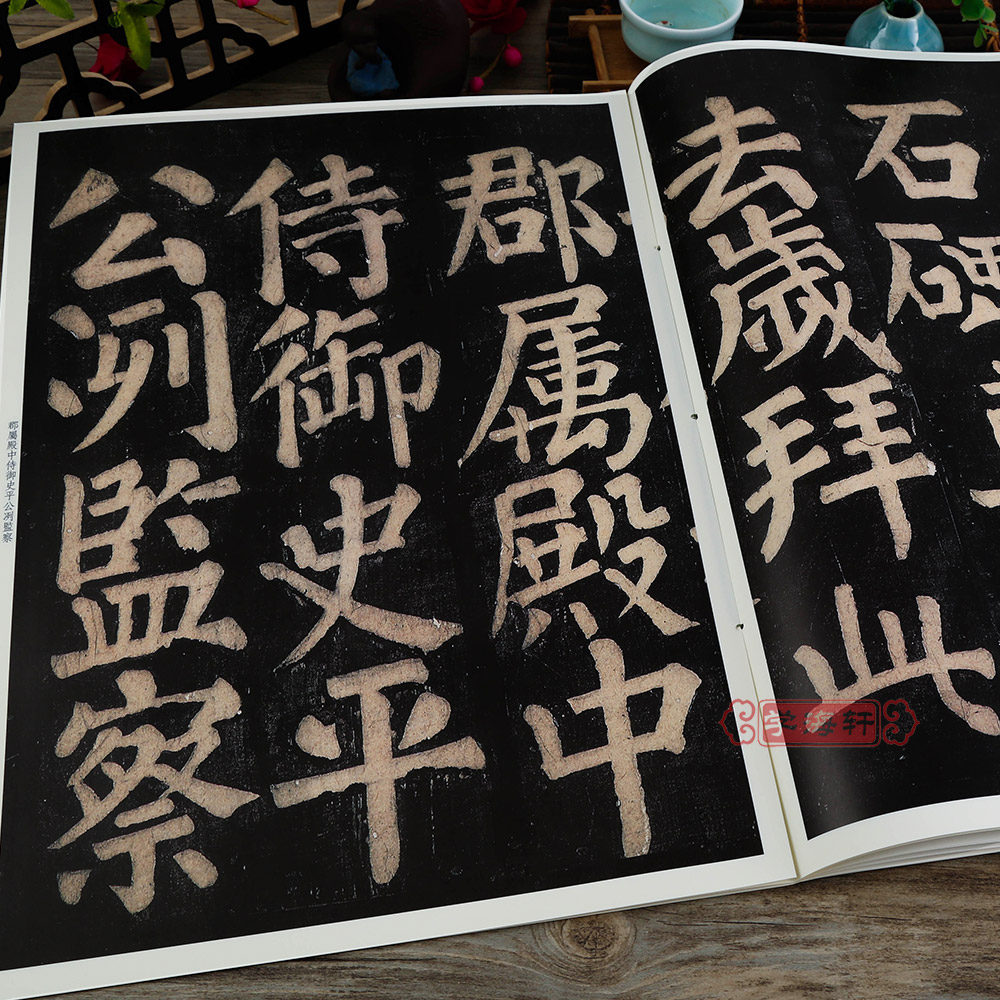 石
去歲拜此
郡属殿中
侍御史平
公冽監察
郡屬殿中侍御史平公冽監察
学海轩